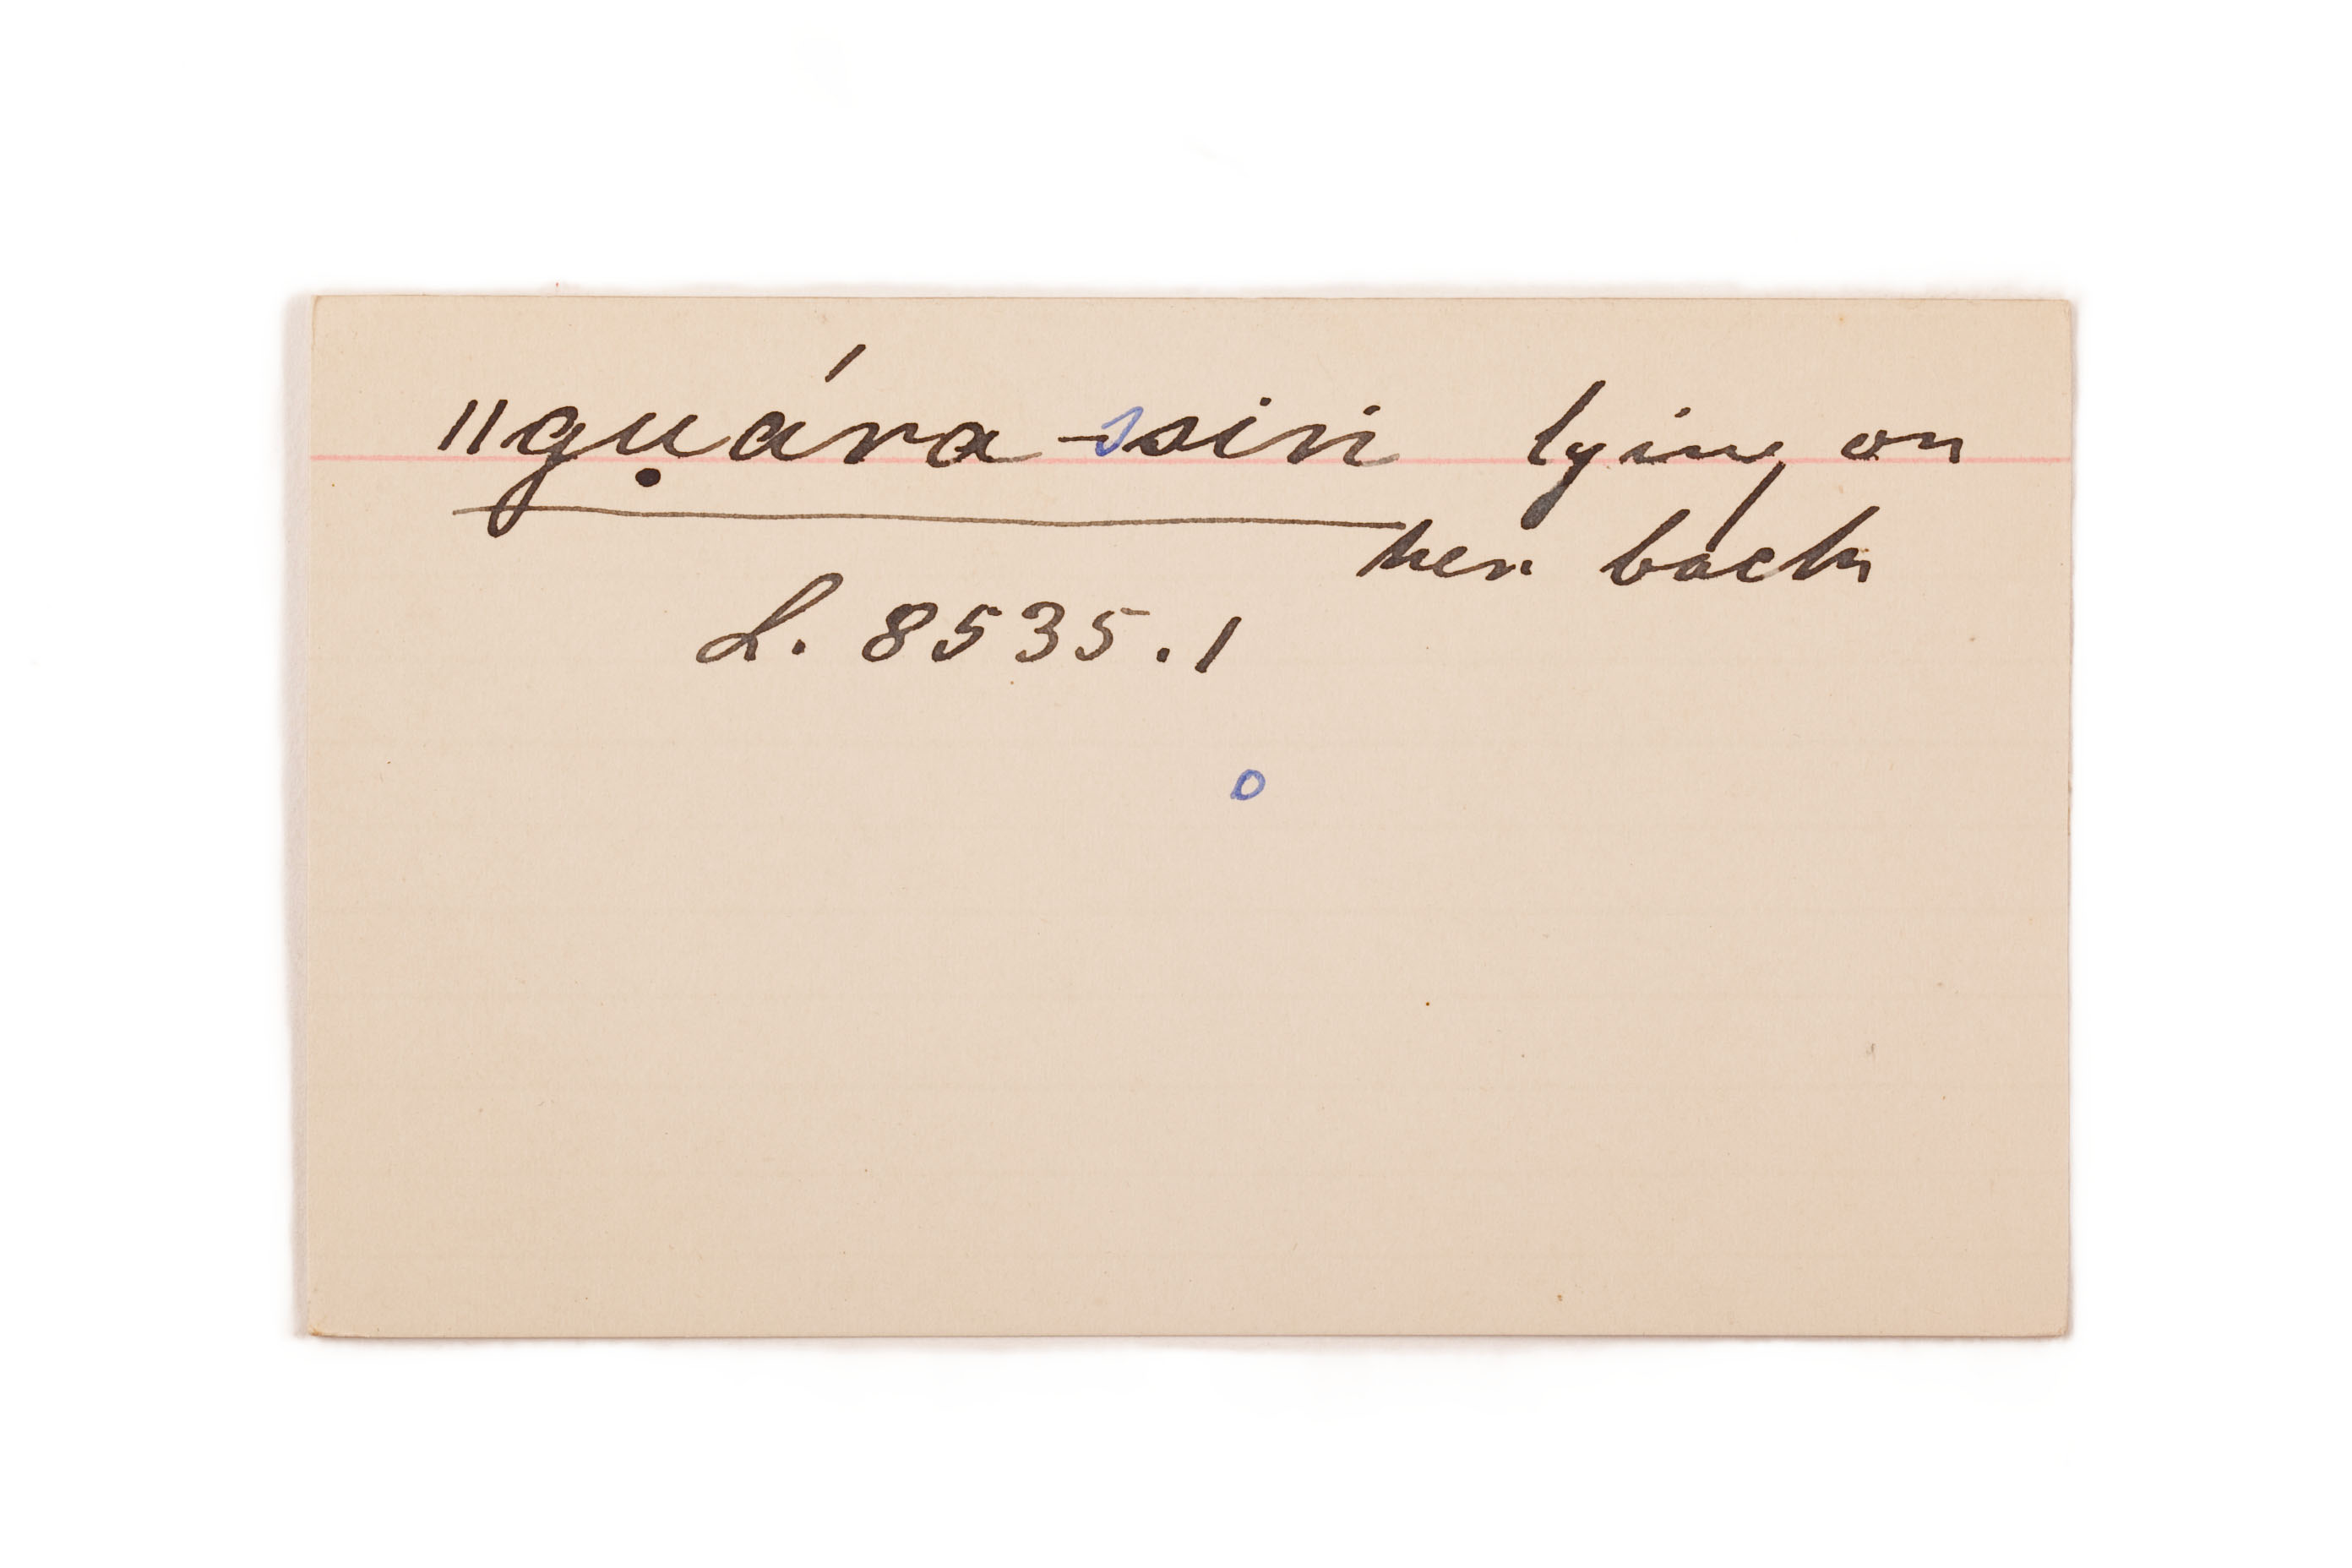 ǁgụára-ssiri lying on
her back
L. 8535.1
o